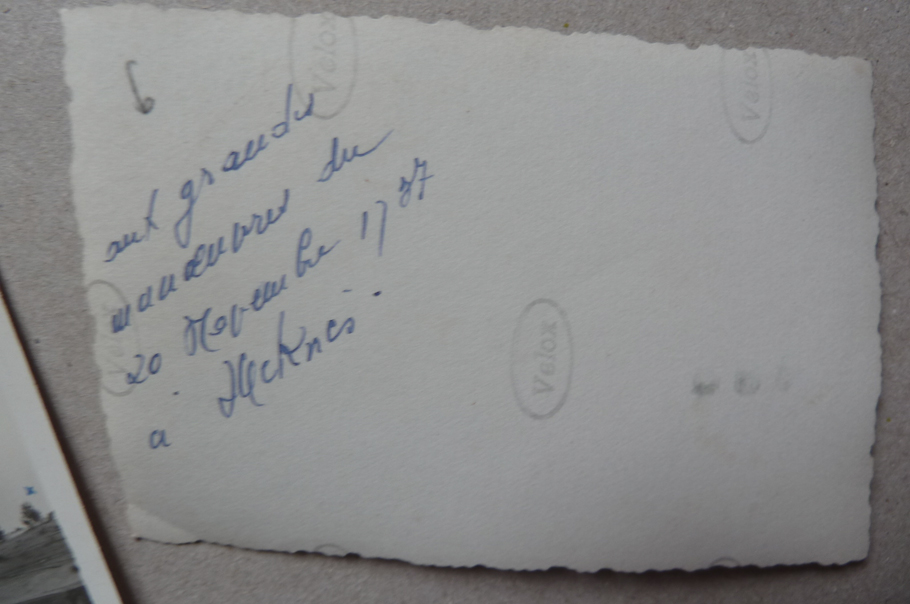 6
aux grandes
manœuvres du
20 Novembre 1937
à Meknès.
Velox
Velox
Velox